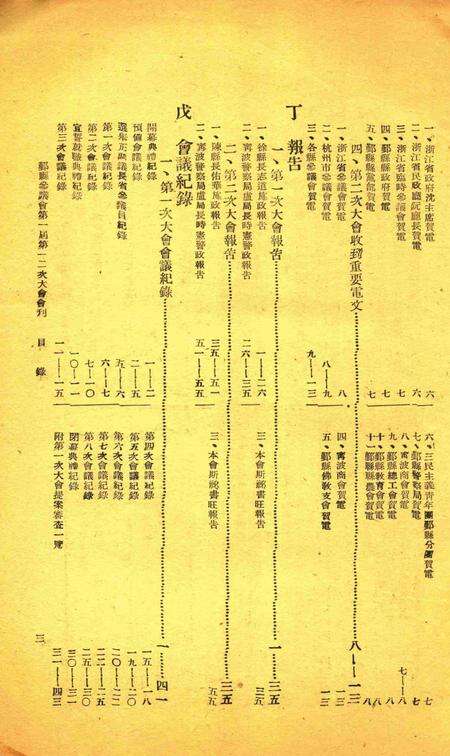 一、浙江省政府沈主席賀電 六
二、浙江省民政廳阮廳長賀電 六
三、浙江省臨時參議會賀電 七
四、鄞縣縣政府賀電 七
五、鄞縣縣黨部賀電 七
六、三民主義青年團鄞縣分團賀電 七
七、鄞縣警察局賀電 七
八、寗波商會賀電 七——八
九、鄞縣總工會賀電 八
十、鄞縣教育會賀電 八
十一、鄞縣縣農會賀電 八
四、第二次大會收到重要電文 八——一三
一、浙江省參議會賀電 八
二、杭州市參議會賀電 八——九
三、各縣參議會賀電 九——一三
四、寗波商會賀電 一三
五、鄞縣佛教支會賀電 一三
丁 報告
一、第一次大會報告 一——三五
一、徐縣長志道施政報告 一——二六
二、寗波警察局盧局長時憲警政報告 二六——三五
三、本會斯祕書旺報告 三五
二、第二次大會報告 三五
一、陳縣長佑華施政報告 三五——五一
二、寗波警察局盧局長時憲警政報告 五一——五五
三、本會斯祕書旺報告 五五
戊 會議紀錄
一、第一次大會會議紀錄 一——四一
開幕典禮紀錄 一——二
預備會議紀錄 二——五
選舉正副議長省參議員紀錄 五——六
第一次會議紀錄 六——七
第二次會議紀錄 七——一〇
宣誓就職典禮紀錄 一〇——一一
第三次會議紀錄 一一——一五
第四次會議紀錄 一五——一八
第五次會議紀錄 一九——二〇
第六次會議紀錄 二〇——二二
第七次會議紀錄 二二——二五
第八次會議紀錄 二五——三〇
閉幕典禮紀錄 三〇——三一
附第一次大會提案審查一覽 三一——四三
鄞縣參議會第一屆第一二次大會會刊 目錄 三